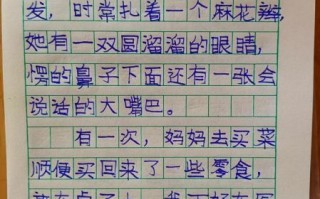 发，时常扎着一个麻花辫，
她有一双圆溜溜的眼睛，
的鼻子下面还有一张会
说话的大嘴巴。
有一次，妈妈去买菜
顺便买回来了一些零食，